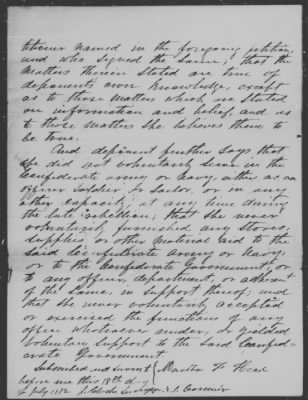 titioner named in the foregoing petition,
and who signed the same, that the
matters therein stated are true of
deponents own knowledge, except
as to those matters which are stated
on information and belief, and as
to those matters she believes them to
be true.
And deponent further says that
she did not voluntarily serve in the
Confederate army or Navy, either as an
officer Soldier or Sailor, or in any
other capacity, at any time during
the late rebellion; that she never
voluntarily furnished any Stores,
Supplies, or other material aid to the
said Confederate Army or Navy,
or to the Confederate Government, or
to any officer, department, or adherent
of the same, in support thereof; and
that she never voluntarily accepted
or exercised the functions of any
office whatsoever under, or yielded
voluntary support to the said Confed-
erate Government.
Subscribed and sworn to Martha F Head
before me this 18th day
of July 1872